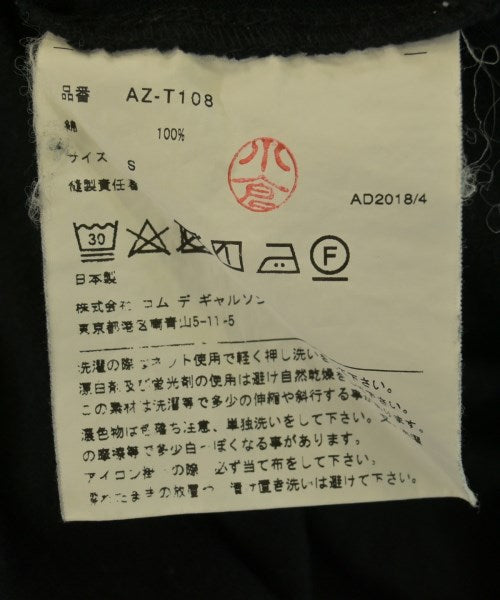 品番 AZ-T108
綿 100%
サイズ S
縫製責任者
小倉
AD2018/4
30 F
日本製
株式会社 コム デ ギャルソン
東京都港区南青山5-11-5
洗濯の際はネット使用で軽く押し洗いを
漂白剤及び蛍光剤の使用は避け自然乾燥を下さい。
この素材は洗濯等で多少の伸縮や斜行する事
濃色物は色落ち注意、単独洗いをして下さい。又
の摩擦等で多少白っぽくなる事があります。
アイロン掛けの際 必ず当て布をして下さい。
濡れたままの放置や 漬け置き洗いは避けて下さい。